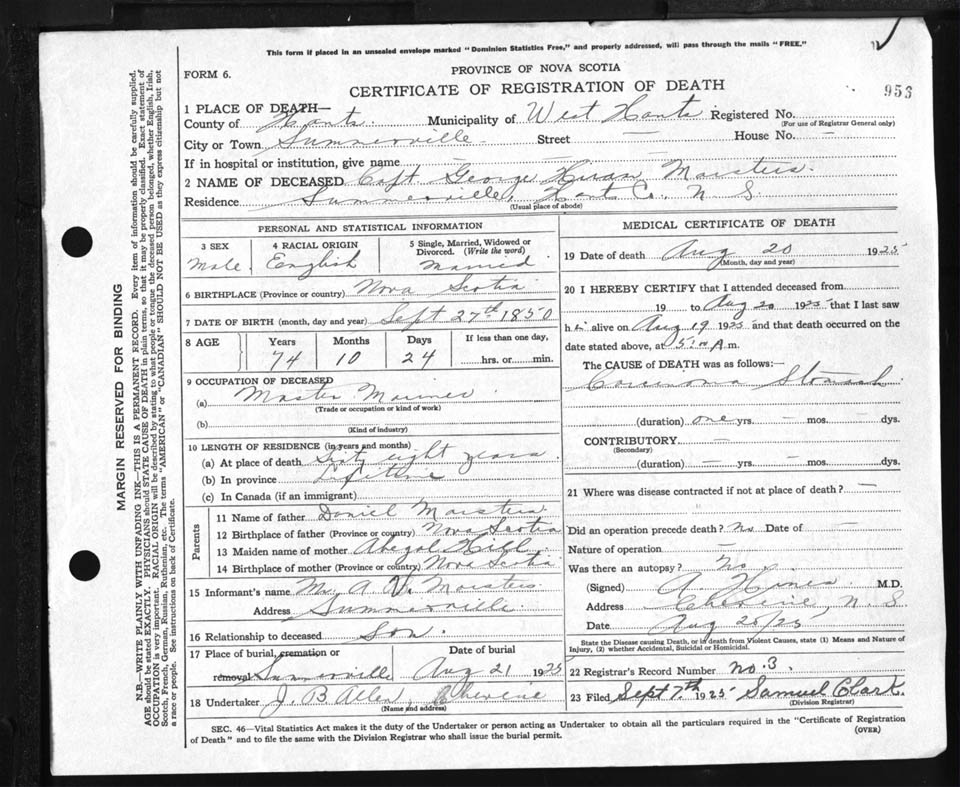 This form if placed in an unsealed envelope marked "Dominion Statistics Free," and properly addressed, will pass through the mails "FREE."
FORM 6.
PROVINCE OF NOVA SCOTIA
CERTIFICATE OF REGISTRATION OF DEATH
953
1 PLACE OF DEATH—
County of Hants Municipality of West Hants Registered No.
(For use of Registrar General only)
City or Town Summerville Street — House No. —
If in hospital or institution, give name —
2 NAME OF DECEASED Capt George Maisters
Residence Summerville, Hants Co., N S
(Usual place of abode)
PERSONAL AND STATISTICAL INFORMATION
3 SEX 4 RACIAL ORIGIN 5 Single, Married, Widowed or Divorced. (Write the word)
Male English Married
6 BIRTHPLACE (Province or country) Nova Scotia
7 DATE OF BIRTH (month, day and year) Sept 27th 1850
8 AGE Years Months Days If less than one day,
74 10 24 hrs. or min.
9 OCCUPATION OF DECEASED
(a) Master Mariner
(Trade or occupation or kind of work)
(b)
(Kind of industry)
10 LENGTH OF RESIDENCE (in years and months)
(a) At place of death Sixty eight years
(b) In province Life time
(c) In Canada (if an immigrant)
Parents
11 Name of father Daniel Maisters
12 Birthplace of father (Province or country) Nova Scotia
13 Maiden name of mother
14 Birthplace of mother (Province or country) Nova Scotia
15 Informant's name Mr. A. V. Maisters
Address Summerville
16 Relationship to deceased Son.
17 Place of burial, cremation or removal Date of burial
Summerville Aug 21 1925
18 Undertaker J. B. Allen, Cheverie
(Name and address)
MEDICAL CERTIFICATE OF DEATH
19 Date of death Aug 20 1925
(Month, day and year)
20 I HEREBY CERTIFY that I attended deceased from
19 to Aug 20 1925 that I last saw
h alive on Aug 19 1925 and that death occurred on
date stated above, at A m.
The CAUSE of DEATH was as follows:—
Carcinoma Stomach
(duration) one yrs. — mos. — dys.
CONTRIBUTORY —
(Secondary)
(duration) — yrs. — mos. — dys.
21 Where was disease contracted if not at place of death? —
Did an operation precede death? No Date of —
Nature of operation —
Was there an autopsy? No.
(Signed) A Hines M.D.
Address Cheverie, N. S.
Date Aug 25/25
State the Disease causing Death, or in death from Violent Causes, state (1) Means and Nature of
Injury, (2) whether Accidental, Suicidal or Homicidal.
22 Registrar's Record Number No. 3.
23 Filed Sept 7th 1925 Samuel Clark.
(Division Registrar)
SEC. 46—Vital Statistics Act makes it the duty of the Undertaker or person acting as Undertaker to obtain all the particulars required in the "Certificate of Registration
of Death" and to file the same with the Division Registrar who shall issue the burial permit.
(OVER)
MARGIN RESERVED FOR BINDING
N.B.—WRITE PLAINLY WITH UNFADING INK—THIS IS A PERMANENT RECORD. Every item of information should be carefully supplied.
AGE should be stated EXACTLY. PHYSICIANS should STATE CAUSE OF DEATH in plain terms, so that it may be properly classified. Exact statement of
OCCUPATION is very important. RACIAL ORIGIN will be described by stating to what people or tongue the deceased person belonged, whether English, Irish,
Scotch, French, German, Russian, Ruthenian, etc. The terms "AMERICAN" or "CANADIAN" SHOULD NOT BE USED as they express citizenship but not
a race or people. See instructions on back of Certificate.